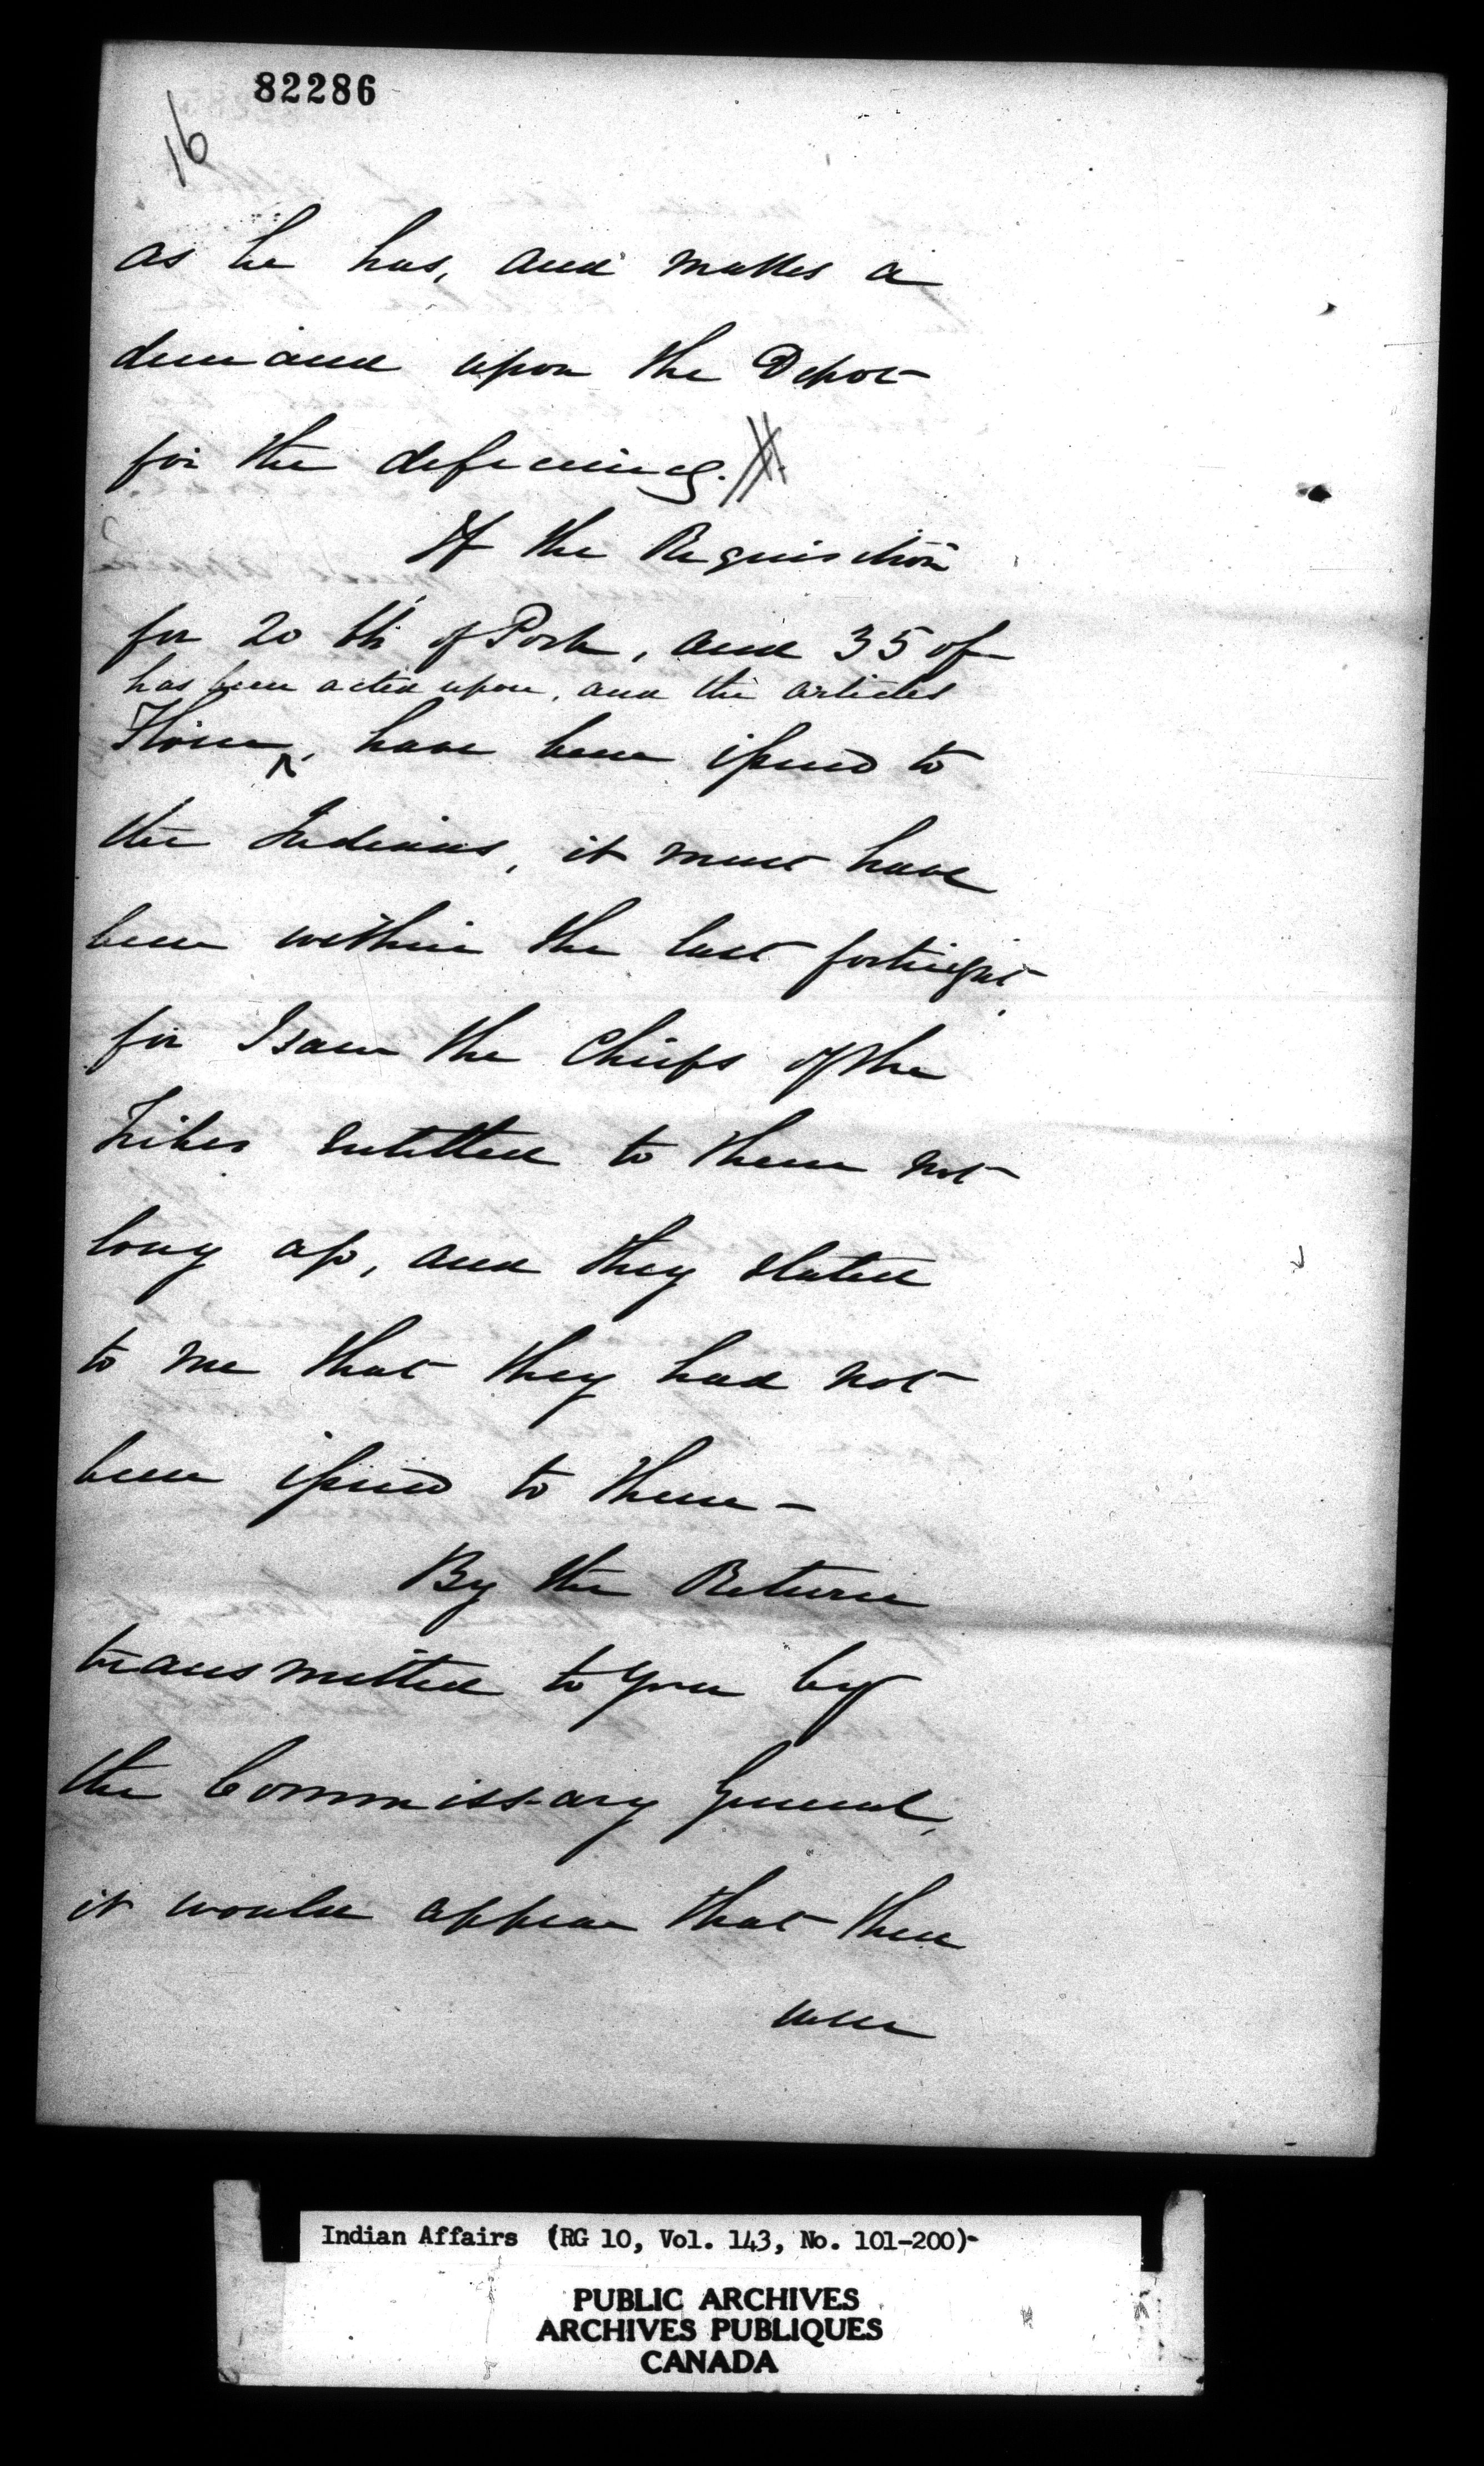 82286
16
as he has, and makes a
demand upon the Depot
for the deficiency.
If the Requisition
for 20 bls of Pork, and 35 of
has been acted upon, and the articles
Flour ^, have been issued to
the Indians, it must have
been within the last fortnight,
for I saw the Chiefs of the
Tribes entitled to them not
long ago, and they stated
to me that they had not
been issued to them -
By the Return
transmitted to you by
the Commissary General,
it would appear that there
were
Indian Affairs (RG 10, Vol. 143, No. 101-200)-
PUBLIC ARCHIVES
ARCHIVES PUBLIQUES
CANADA